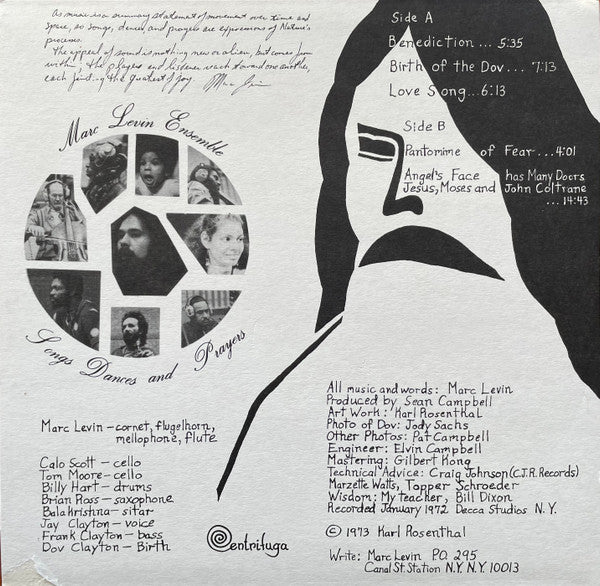 As music is a summary statement of movement over time and
space, so songs, dances and prayers are expressions of Nature's
processes.
The appeal of sound is nothing new or alien, but comes from
within; the players and listener reach toward one another,
each finding the greatest joy. Marc Levin
Marc Levin Ensemble
Songs Dances and Prayers
Side A
Benediction... 5:35
Birth of the Dov... 7:13
Love Song...6:13
Side B
Pantomime of Fear...4:01
Angel's Face has Many Doors
Jesus, Moses and John Coltrane
...14:43
Marc Levin – cornet, flugelhorn,
mellophone, flute
Calo Scott – cello
Tom Moore – cello
Billy Hart – drums
Brian Ross – saxophone
Balakrishna – sitar
Jay Clayton – voice
Frank Clayton – bass
Dov Clayton – Birth
Centrifuga
All music and words: Marc Levin
Produced by Sean Campbell
Art Work: Karl Rosenthal
Photo of Dov: Jody Sachs
Other Photos: Pat Campbell
Engineer: Elvin Campbell
Mastering: Gilbert Kong
Technical Advice: Craig Johnson (C.J.R. Records)
Marzette Watts, Topper Schroeder
Wisdom: My teacher, Bill Dixon
Recorded January 1972 Decca Studios N.Y.
© 1973 Karl Rosenthal
Write: Marc Levin P.O. 295
Canal St. Station N.Y. N.Y. 10013